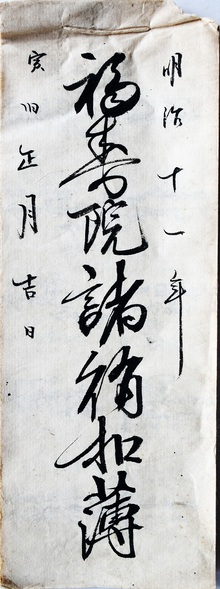 明治十一年
福寿院諸補扣薄
寅旧正月吉日